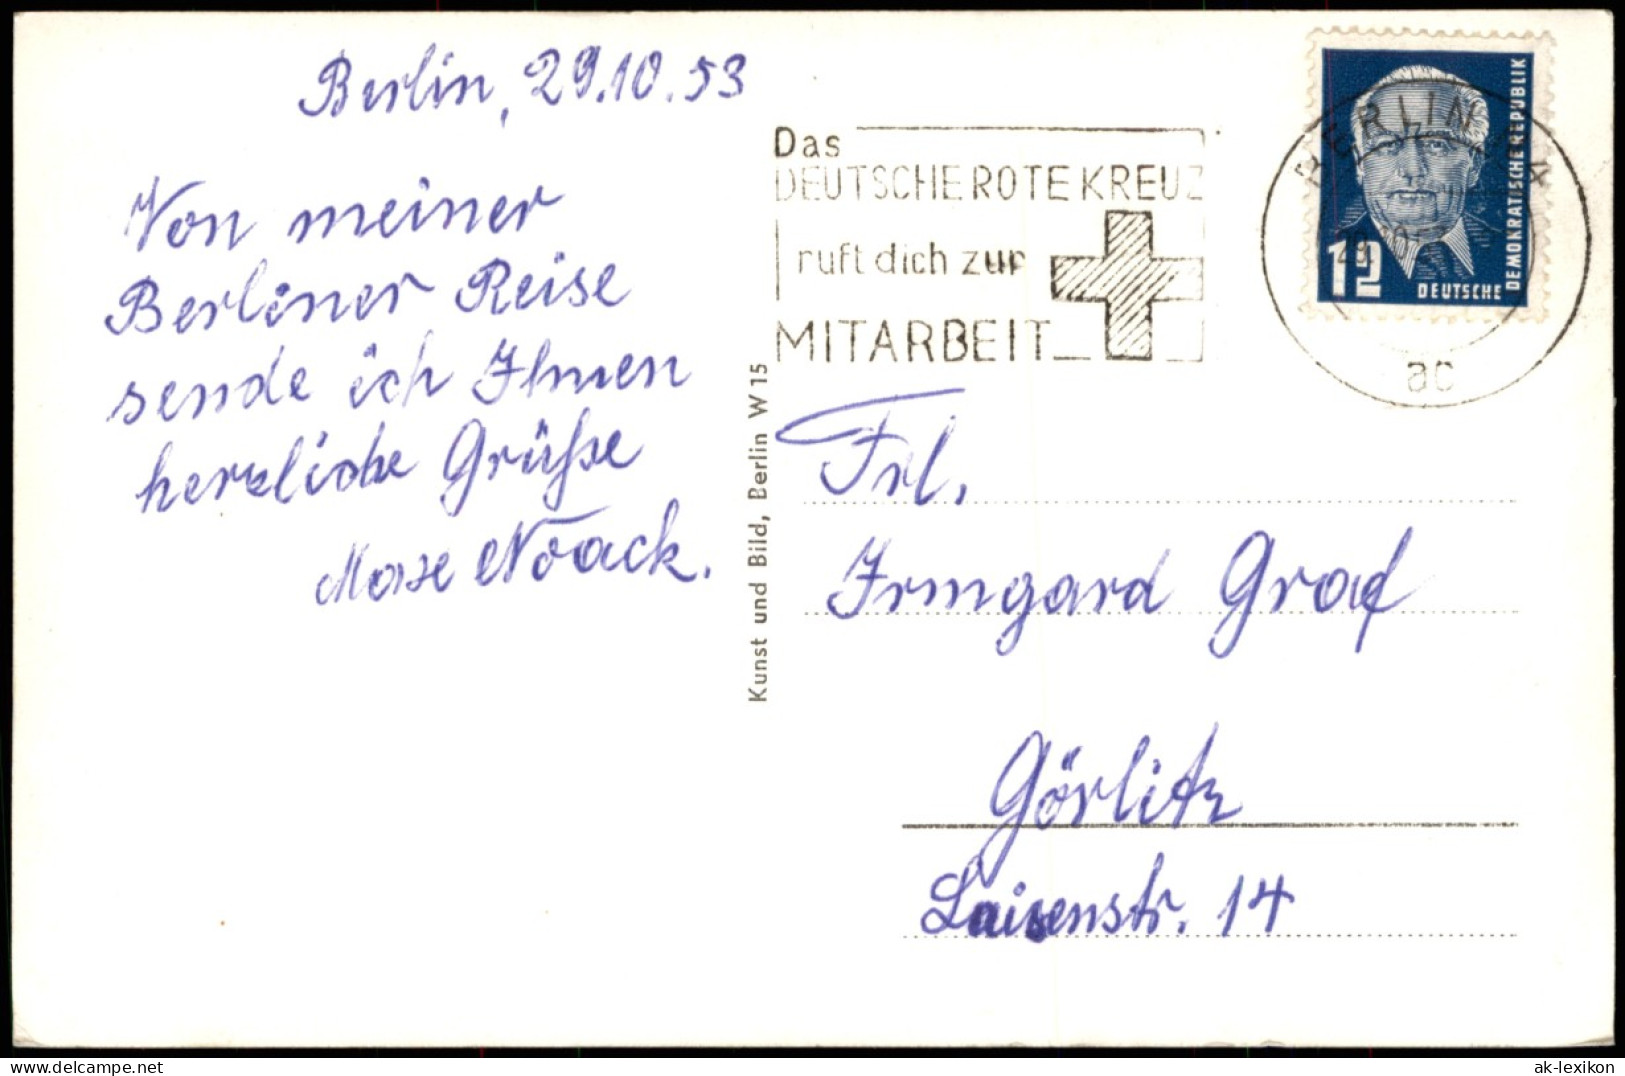 Berlin, 29.10.53
Von meiner
Berliner Reise
sende ich Ihnen
herzliche Grüße
Noack.
Kunst und Bild, Berlin W 15
Das
DEUTSCHE ROTE KREUZ
ruft dich zur
MITARBEIT
BERLIN
ac
12
DEUTSCHE
DEMOKRATISCHE REPUBLIK
Frl.
Irmgard Graf
Görlitz
Luisenstr. 14
ak-lexikon